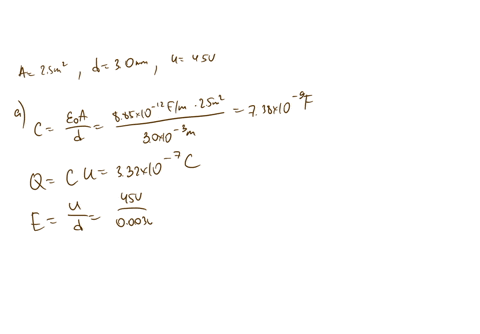 A = 2.5m², d = 3.0mm, u = 45V
a) C = ε₀A/d = (8.85×10⁻¹² F/m · 2.5m²)/(3.0×10⁻³m) = 7.38×10⁻⁹F
Q = C u = 3.32×10⁻⁷ C
E = u/d = 45V/0.003